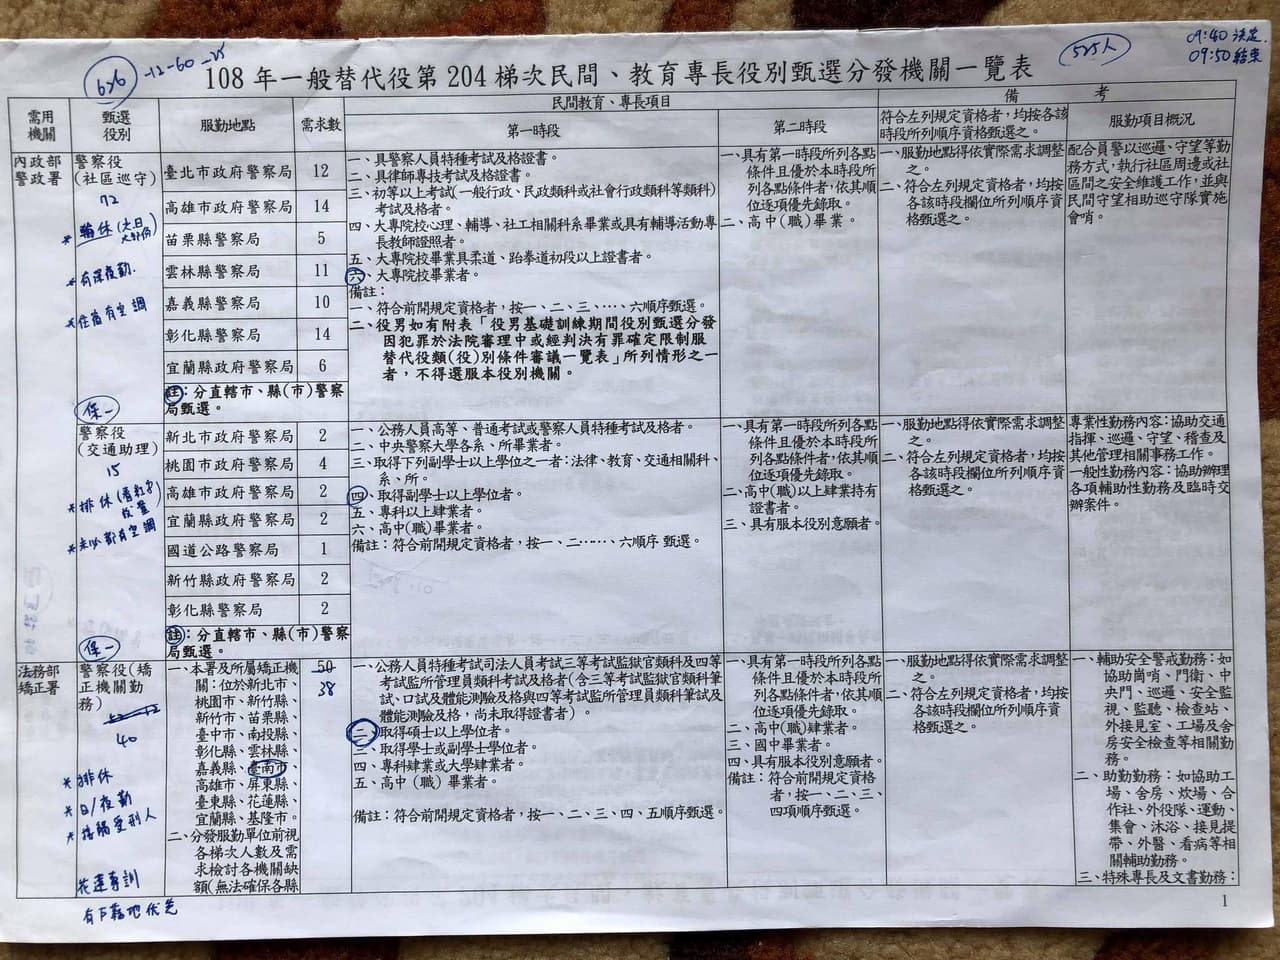 626 -12-60-25
525人
09:40 決定.
09:50 結束
108年一般替代役第204梯次民間、教育專長役別甄選分發機關一覽表
需用機關
甄選役別
服勤地點
需求數
民間教育、專長項目
第一時段
第二時段
備 考
符合左列規定資格者，均按各該
時段所列順序資格甄選之。
服勤項目概況
內政部
警政署
警察役
(社區巡守)
72
* 輪休
* 有深夜勤.
* 住宿有空調
保一
臺北市政府警察局 12
高雄市政府警察局 14
苗栗縣警察局 5
雲林縣警察局 11
嘉義縣警察局 10
彰化縣警察局 14
宜蘭縣政府警察局 6
註：分直轄市、縣(市)警察
局甄選。
一、具警察人員特種考試及格證書。
二、具律師專技考試及格證書。
三、初等以上考試(一般行政、民政類科或社會行政類科等類科)
考試及格者。
四、大專院校心理、輔導、社工相關科系畢業或具有輔導活動專
長教師證照者。
五、大專院校畢業具柔道、跆拳道初段以上證書者。
六、大專院校畢業者。
備註：
一、符合前開規定資格者，按一、二、三、…、六順序甄選。
二、役男如有附表「役男基礎訓練期間役別甄選分發
因犯罪於法院審理中或經判決有罪確定限制服
替代役類(役)別條件審議一覽表」所列情形之一
者，不得選服本役別機關。
一、具有第一時段所列各點
條件且優於本時段所
列各點條件者，依其順
位逐項優先錄取。
二、高中(職)畢業。
一、服勤地點得依實際需求調整
之。
二、符合左列規定資格者，均按
各該時段欄位所列順序資
格甄選之。
配合員警以巡邏、守望等勤
務方式，執行社區周邊或社
區間之安全維護工作，並與
民間守望相助巡守隊實施
會哨。
警察役
(交通助理)
15
* 排休
* 未必都有空調
保一
新北市政府警察局 2
桃園市政府警察局 4
高雄市政府警察局 2
宜蘭縣政府警察局 2
國道公路警察局 1
新竹縣政府警察局 2
彰化縣警察局 2
註：分直轄市、縣(市)警察
局甄選。
一、公務人員高等、普通考試或警察人員特種考試及格者。
二、中央警察大學各系、所畢業者。
三、取得下列副學士以上學位之一者：法律、教育、交通相關科、
系、所。
四、取得副學士以上學位者。
五、專科以上肄業者。
六、高中(職)畢業者。
備註：符合前開規定資格者，按一、二……、六順序 甄選。
一、具有第一時段所列各點
條件且優於本時段所
列各點條件者，依其順
位逐項優先錄取。
二、高中(職)以上肄業持有
證書者。
三、具有服本役別意願者。
一、服勤地點得依實際需求調整
之。
二、符合左列規定資格者，均按
各該時段欄位所列順序資
格甄選之。
專業性勤務內容：協助交通
指揮、巡邏、守望、稽查及
其他管理相關事務工作。
一般性勤務內容：協助辦理
各項輔助性勤務及臨時交
辦案件。
法務部
矯正署
警察役(矯
正機關勤
務)
40
* 排休
* 日/夜勤
* 接觸受刑人
花蓮專訓
有戶籍地優先
一、本署及所屬矯正機
關：位於新北市、
桃園市、新竹縣、
新竹市、苗栗縣、
臺中市、南投縣、
彰化縣、雲林縣、
嘉義縣、臺南市、
高雄市、屏東縣、
臺東縣、花蓮縣、
宜蘭縣、基隆市。
二、分發服勤單位前視
各梯次人數及需
求檢討各機關缺
額(無法確保各縣
50
38
一、公務人員特種考試司法人員考試三等考試監獄官類科及四等
考試監所管理員類科考試及格者(含三等考試監獄官類科筆
試、口試及體能測驗及格與四等考試監所管理員類科筆試及
體能測驗及格，尚未取得證書者)。
二、取得碩士以上學位者。
三、取得學士或副學士學位者。
四、專科肄業或大學肄業者。
五、高中（職）畢業者。
備註：符合前開規定資格者，按一、二、三、四、五順序甄選。
一、具有第一時段所列各點
條件且優於本時段所
列各點條件者，依其順
位逐項優先錄取。
二、高中(職)肄業者。
三、國中畢業者。
四、具有服本役別意願者。
備註：符合前開規定資格
者，按一、二、三、
四項順序甄選。
一、服勤地點得依實際需求調整
之。
二、符合左列規定資格者，均按
各該時段欄位所列順序資
格甄選之。
一、輔助安全警戒勤務：如
協助崗哨、門衛、中
央門、巡邏、安全監
視、監聽、檢查站、
外接見室、工場及舍
房安全檢查等相關勤
務。
二、助勤勤務：如協助工
場、舍房、炊場、合
作社、外役隊、運動、
集會、沐浴、接見提
帶、外醫、看病等相
關輔助勤務。
三、特殊專長及文書勤務：
1